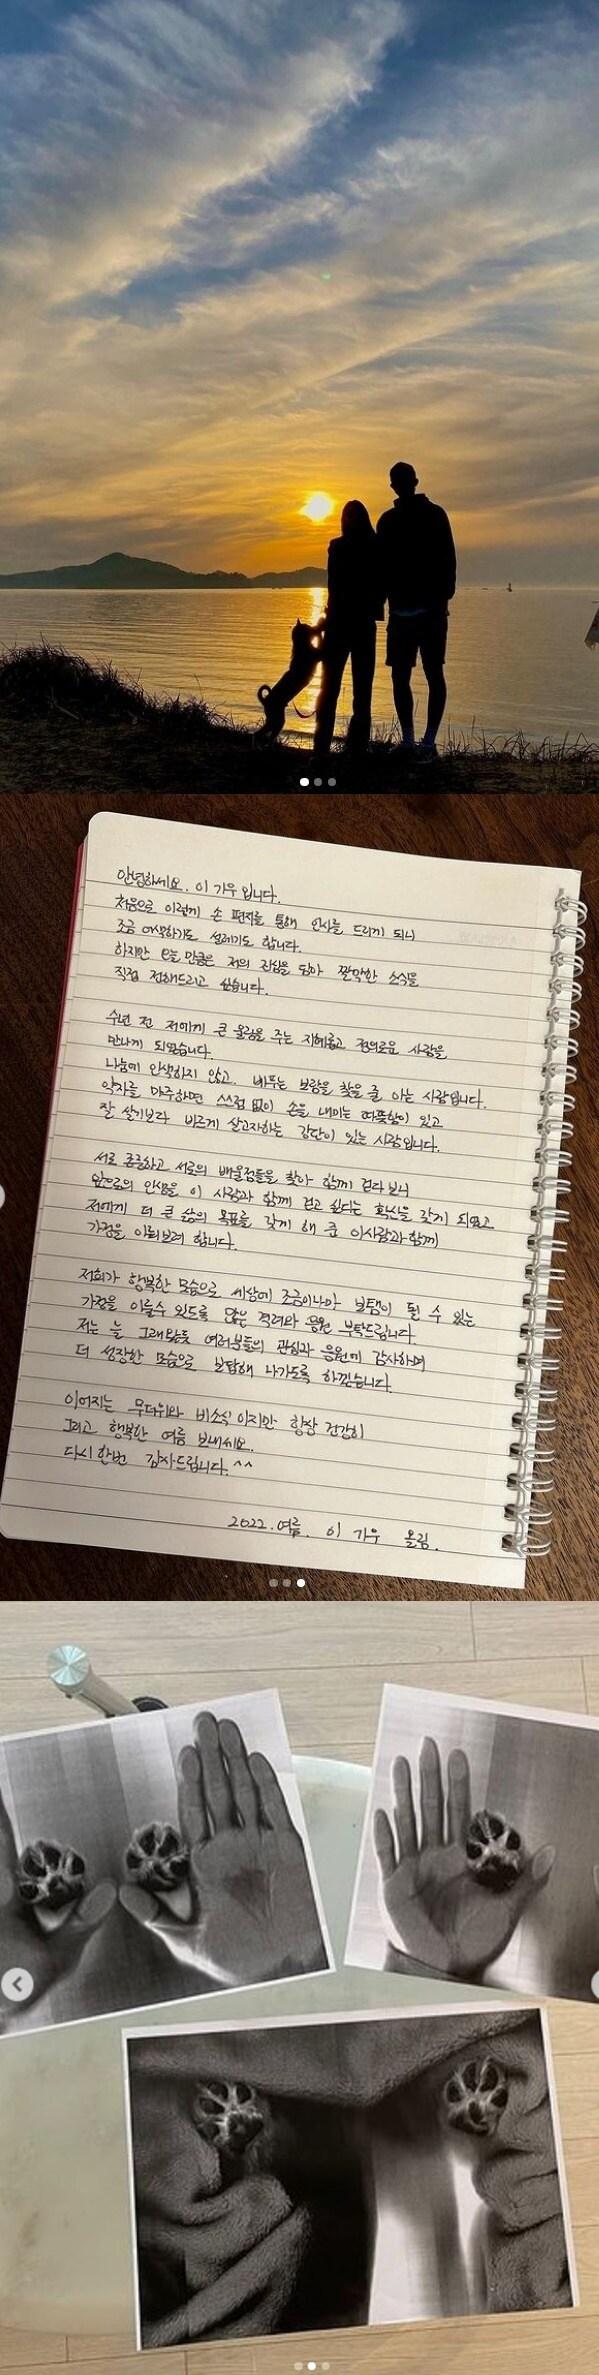 안녕하세요. 이 가우 입니다.
처음으로 이렇게 손 편지를 통해 인사를 드리게 되니
조금 어색하기도 설레기도 합니다.
하지만 오늘 만큼은 저의 진심을 담아 짤막한 소식을
직접 전해드리고 싶습니다.
수년 전 저에게 큰 울림을 주는 지혜롭고 정의로운 사람을
만나게 되었습니다.
나눔에 인색하지 않고, 베푸는 보람을 찾을 줄 아는 사람입니다.
약자를 마주하면 스스럼 없이 손을 내미는 따뜻함이 있고
잘 살기보다 바르게 살고자하는 강단이 있는 사람입니다.
서로 존중하고 서로의 배울점들을 찾아 함께 걷다보니
앞으로의 인생을 이 사람과 함께 걷고 싶다는 확신을 갖게 되었고
저에게 더 큰 삶의 목표를 갖게 해 준 이사람과 함께
가정을 이뤄보려 합니다.
저희가 행복한 모습으로 세상에 조금이나마 보탬이 될 수 있는
가정을 이룰수 있도록 많은 격려와 응원 부탁드립니다.
저는 늘 그래왔듯 여러분들의 관심과 응원에 감사하며
더 성장한 모습으로 보답해 나가도록 하겠습니다.
이어지는 무더위와 비소식 이지만 항상 건강히
그리고 행복한 여름 보내세요.
다시 한번 감사드립니다. ^^
2022. 여름. 이 가우 올림.